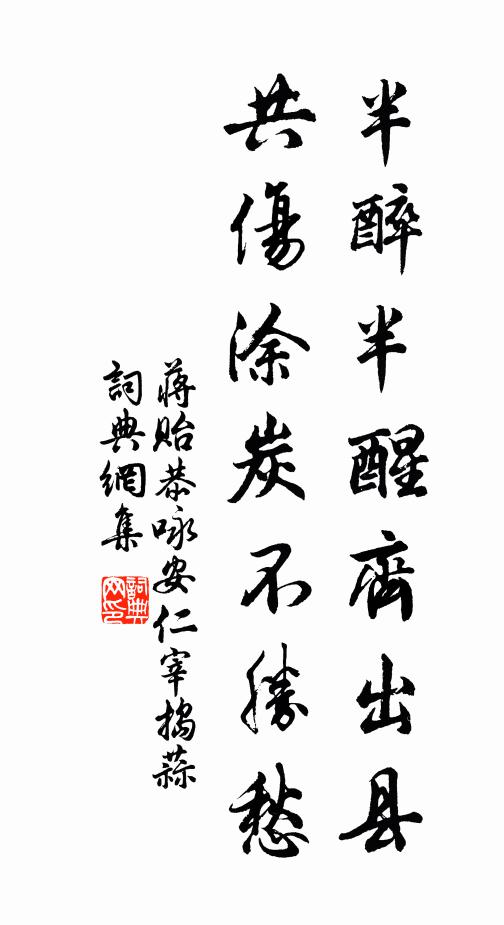 半醉半醒齊出县
共傷涂炭不勝愁
蔣貽恭咏安仁宰搗蒜
詞典網集
詞典
网印